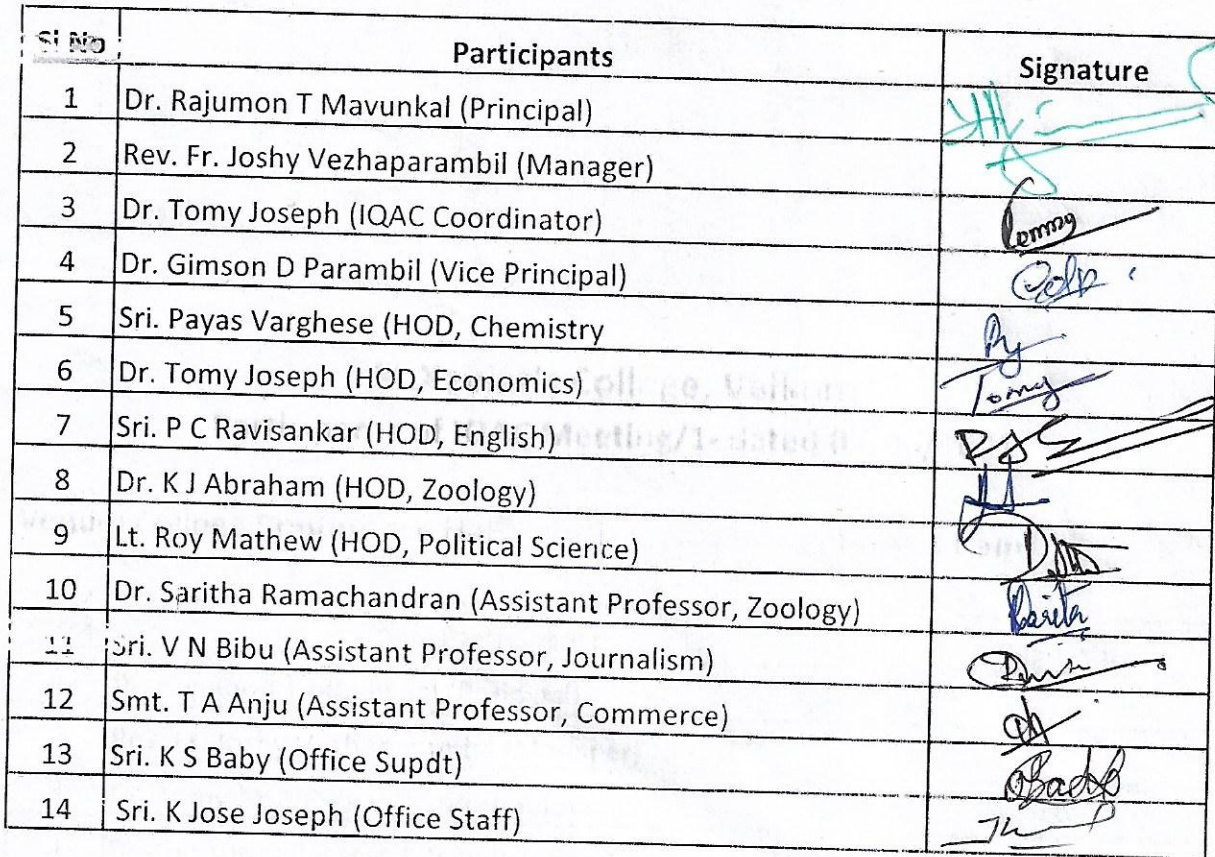 Sl No Participants Signature
1 Dr. Rajumon T Mavunkal (Principal)
2 Rev. Fr. Joshy Vezhaparambil (Manager)
3 Dr. Tomy Joseph (IQAC Coordinator) Tommy
4 Dr. Gimson D Parambil (Vice Principal)
5 Sri. Payas Varghese (HOD, Chemistry
6 Dr. Tomy Joseph (HOD, Economics) Tomy
7 Sri. P C Ravisankar (HOD, English)
8 Dr. K J Abraham (HOD, Zoology)
9 Lt. Roy Mathew (HOD, Political Science)
10 Dr. Saritha Ramachandran (Assistant Professor, Zoology)
11 Sri. V N Bibu (Assistant Professor, Journalism)
12 Smt. T A Anju (Assistant Professor, Commerce)
13 Sri. K S Baby (Office Supdt)
14 Sri. K Jose Joseph (Office Staff)